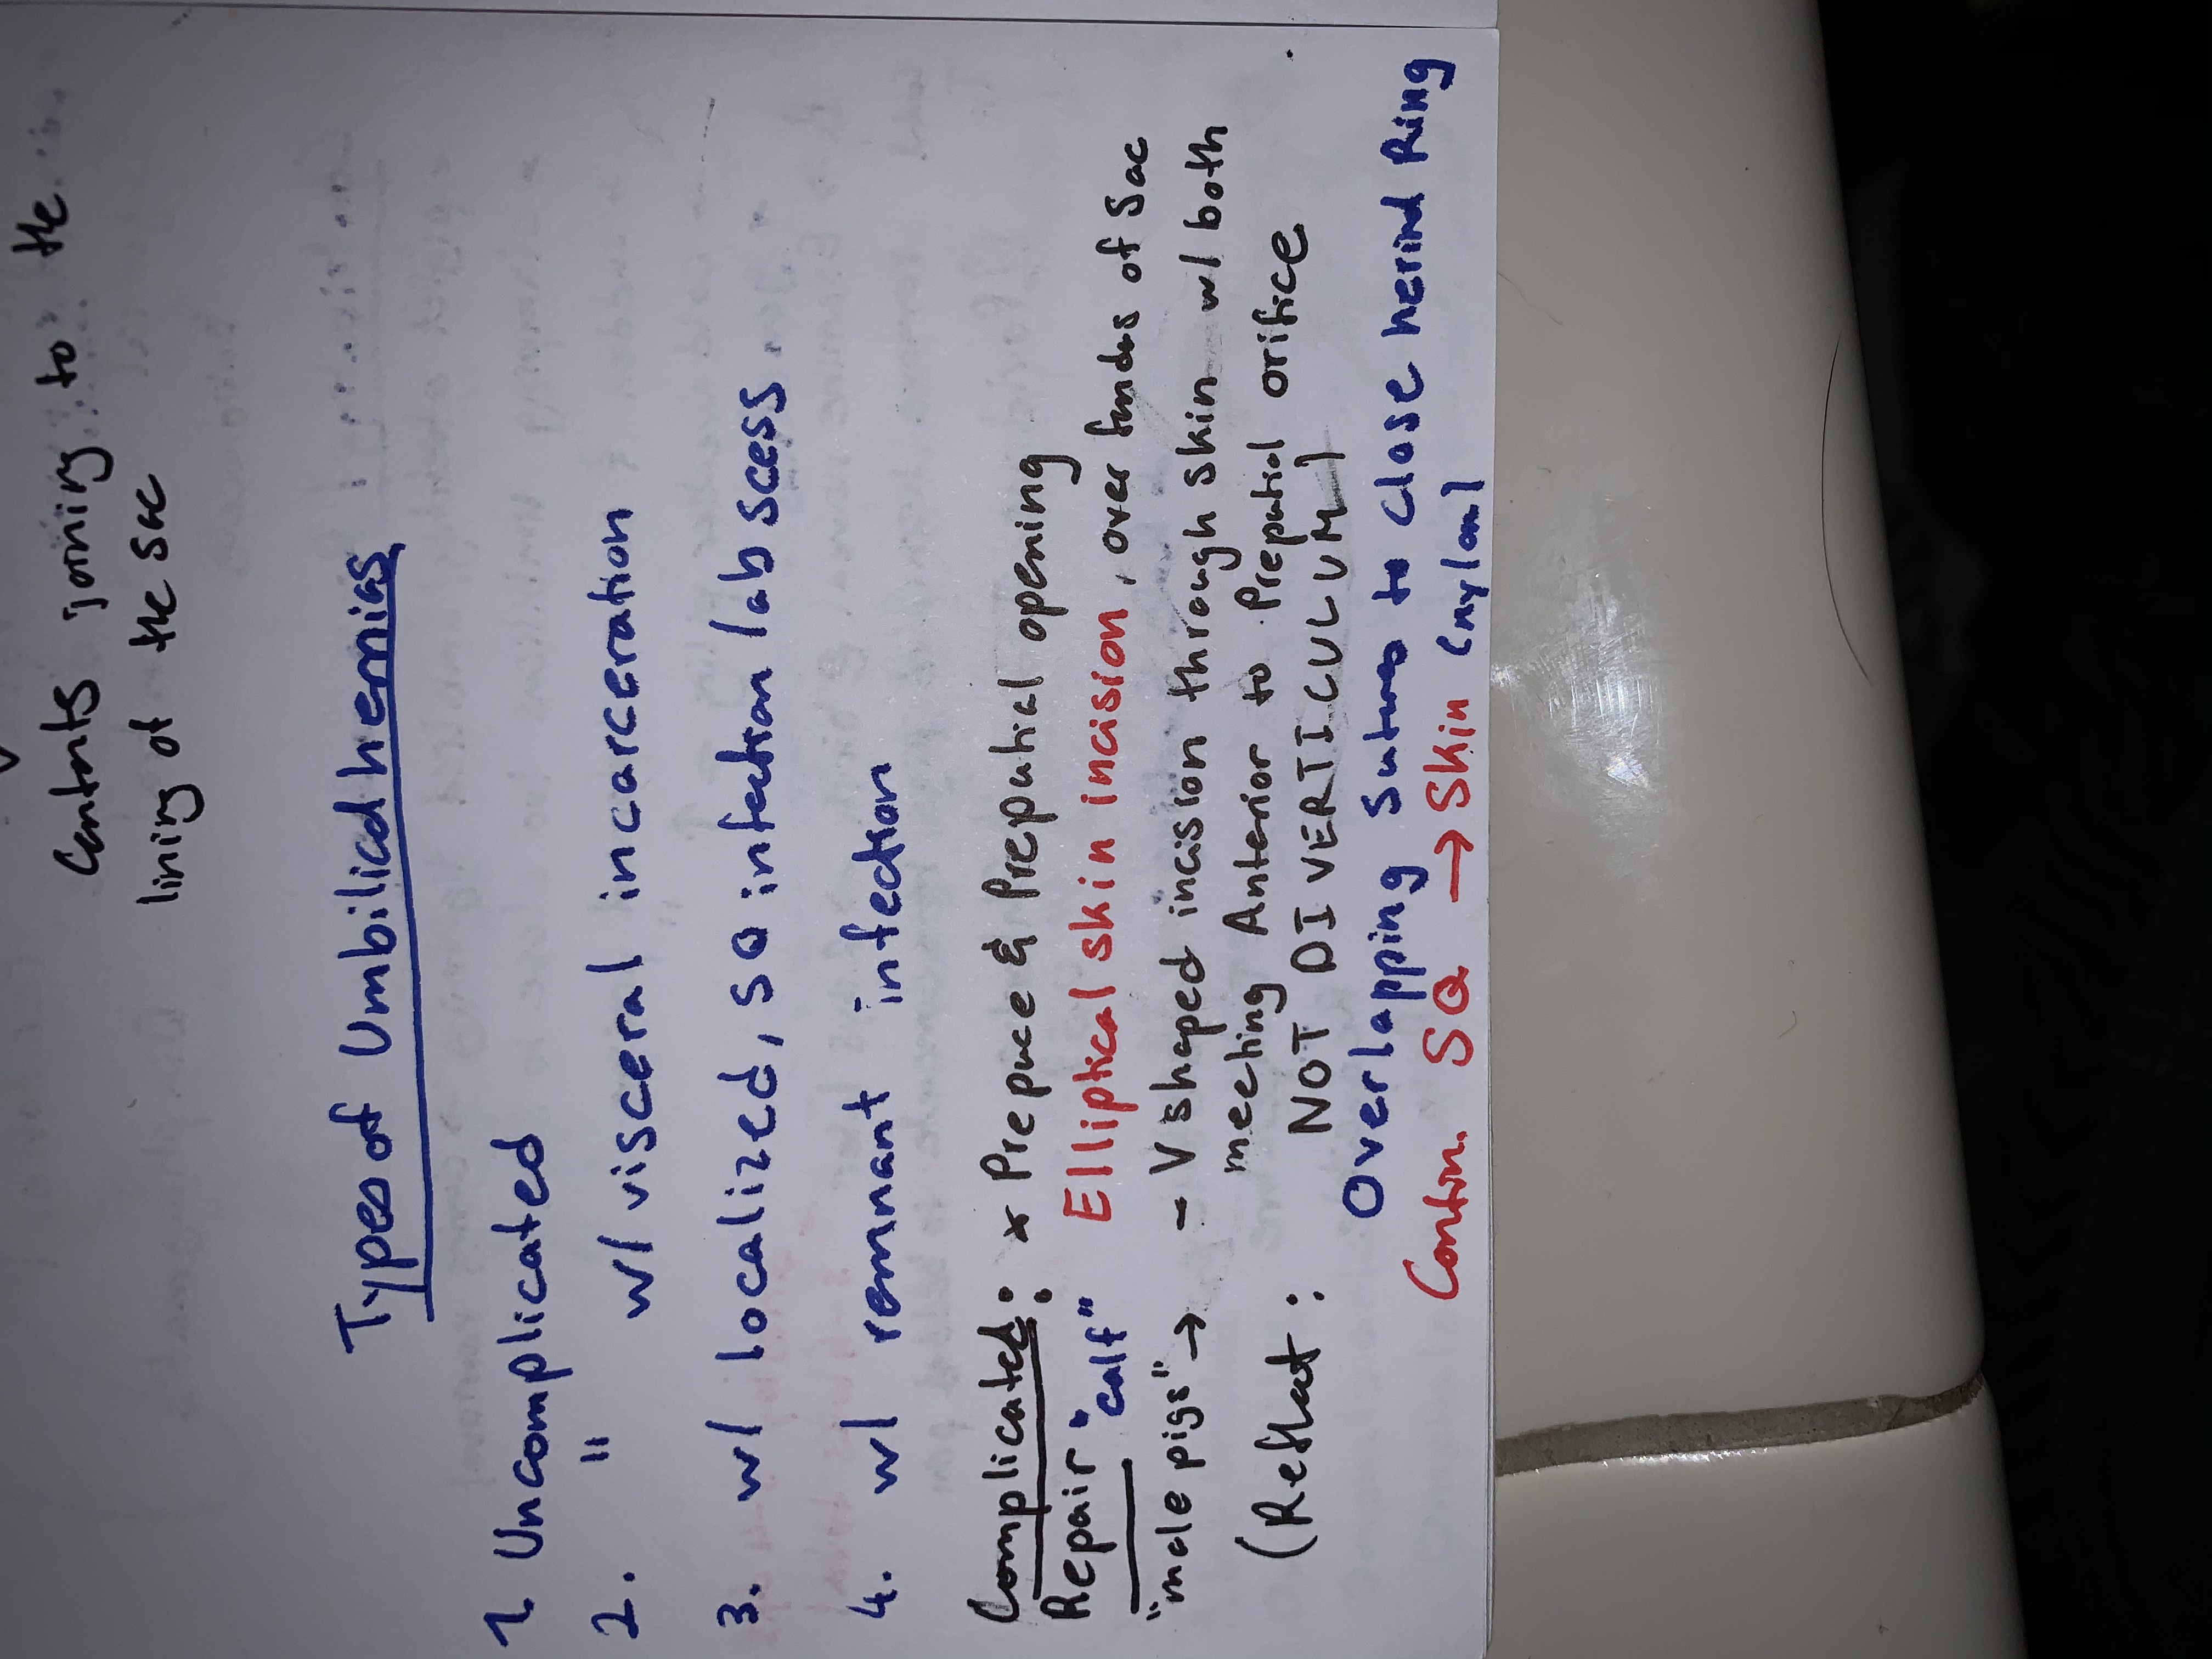 Contents joining to the
lining of the sac
Types of Umbilical hernias
1. Uncomplicated
2. " w/ visceral incarceration
3. w/ localized, SQ infection / abscess
4. w/ remnant infection
Complicated: x Prepuce & Preputial opening
Repair "calf" Elliptical skin incision, over fundus of sac
"male pigs" → - V shaped incision through skin w/ both
meeting Anterior to Preputial orifice
(Reflect: NOT DIVERTICULUM)
Overlapping Sutures to close hernid Ring
Contin. SQ → Skin (nylon)